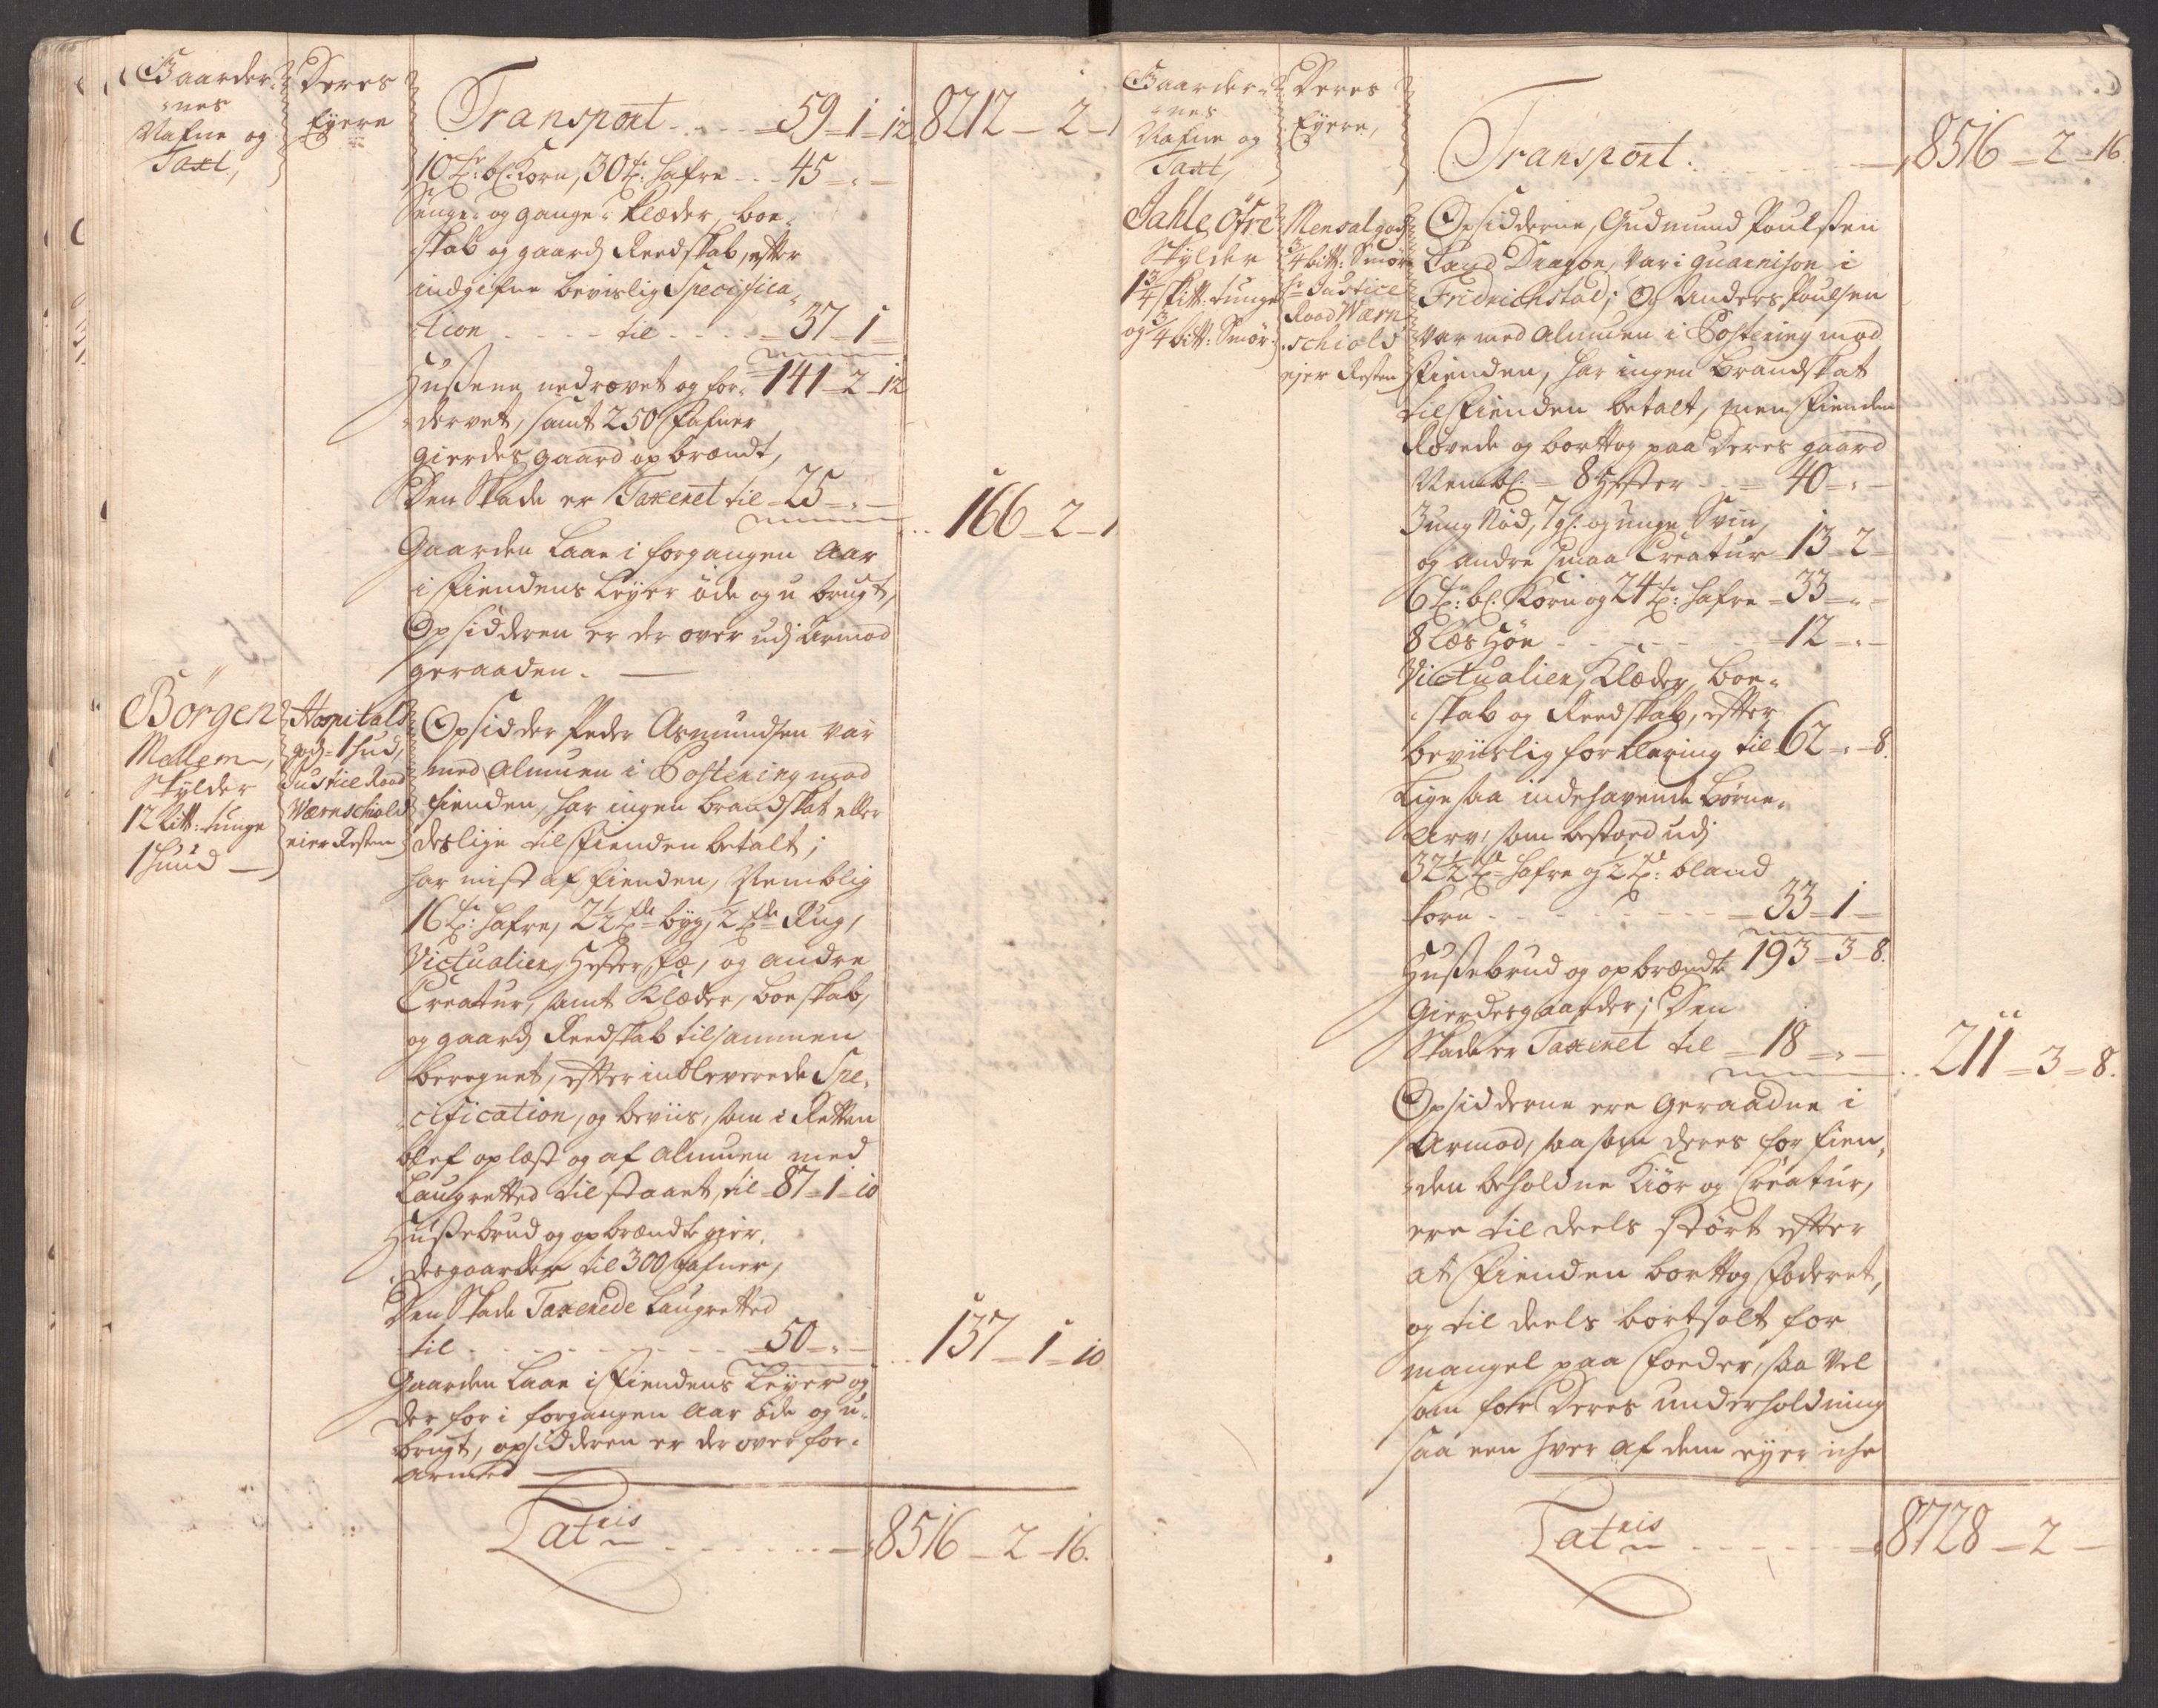 Gaarder-
nes
Nafne og
Taxt,
Deres
Eyere
Transport - - - 59 - 1 - 12 8212 - 2 - 1
10 tr: bl: Korn, 30 tr: hafre - - 45 - " -
Senge- og gange- Klæder, boe-
skab og gaards Reedskab, efter
indgifne bevislig Specifica-
tion - - - - til - - - - 37 - 1 -
Hußene nedrævet og for- 141 - 2 - 12
dervet, samt 250 Fafner
gierdes gaard op brændt,
Den Skade er Taxeret til - 25 - " -
166 - 2 - 1
Gaarden Laae i forgangen Aar
i Fiendens Leyer øde og u brugt,
Opsidderen er der over udj Armod
geraaden. —
Börgen
Mellem,
Skylder
12 Litt: tunge
1 huud —
Hospitals
gods 1 hud,
Justice Raad
Wærnschiold
eier Resten
Opsidder Peder Asmundsen var
med Almuen i Postering mod
fienden, har ingen brandskat eller
deslige til Fienden betalt;
har mist af Fienden, Nemblig
16 tr: hafre, 2½ tr byg, ½ tr Rug,
Victualier, Hester, Fæ, og andre
Creatur, samt Klæder, boeskab,
og gaards Reedskab tilsammen
beregnet, efter indleverede Spe-
cification, og beviis, som i Retten
blef oplæst og af Almuen med
Laugretted til staaet, til - 87 - 1 - 10
Hußebrud og opbrændte gier-
desgaarder til 300 Fafner,
Den Skade Taxerede Laugretted
til - - - - - - - - 50 - " -
137 - 1 - 10
Gaarden Laae i Fiendens Leyer og
der for i forgangen Aar øde og u-
brugt, opsidderen er der over for-
armed —
Latris - - - - - - 8516 - 2 - 16.
Gaarder-
nes
Nafne og
Taxt,
Deres
Eyere,
Transport. - - - - - 8516 - 2 - 16.
Jahle Öfre
Skylder
1¾ Skitt: tunge
og ¾ bitt: Smör
Mensal gods
¾ bitt: Smör
Hr Justice
Raad Wærn
schiold
ejer Resten
Opsidderne, Gudmund Poulßen
Land Dragon, var i guarnison i
Fridrichstad; Og Anders Poulsen
var med Almuen i Postering mod
Fienden, har ingen Brandskat
til Fienden betalt, men Fienden
Røvede og borttog paa Deres gaard
Nembl: 8 Hester - - 40 - " -
3 ung Nöd, 7 gl: og unge Svin,
og andre smaa Creatur 13 - 2 -
6 tr: bl: Korn og 24 tr: hafre - 33 - " -
8 Læs Höe - - - - - - 12 - " -
Victualier, Klæder, boe-
skab og Reedskab, efter
beviislig forklaring til 62 - " - 8.
Ligesaa indehavende börne-
Arv, som bestoed udj
32½ tr hafre og ½ tr: bland
korn - - - - - - - 33 - 1 -
193 - 3 - 8.
Hußebrud og opbrændte
gierdesgaarder; Den
Skade er Taxeret til - 18 - " -
211 - 3 - 8.
Opsidderne ere Geraadne i
Armod, saasom deres for fien-
den beholdne Kiör og Creatur,
ere til deels stört efter
at Fienden borttog Foderet,
og til deels bortsolt for
mangel paa Foeder, saa vel
som for Deres underholdning
saa een hver af dem eyer iche
Latris - - - - - - 8728 - 2 -